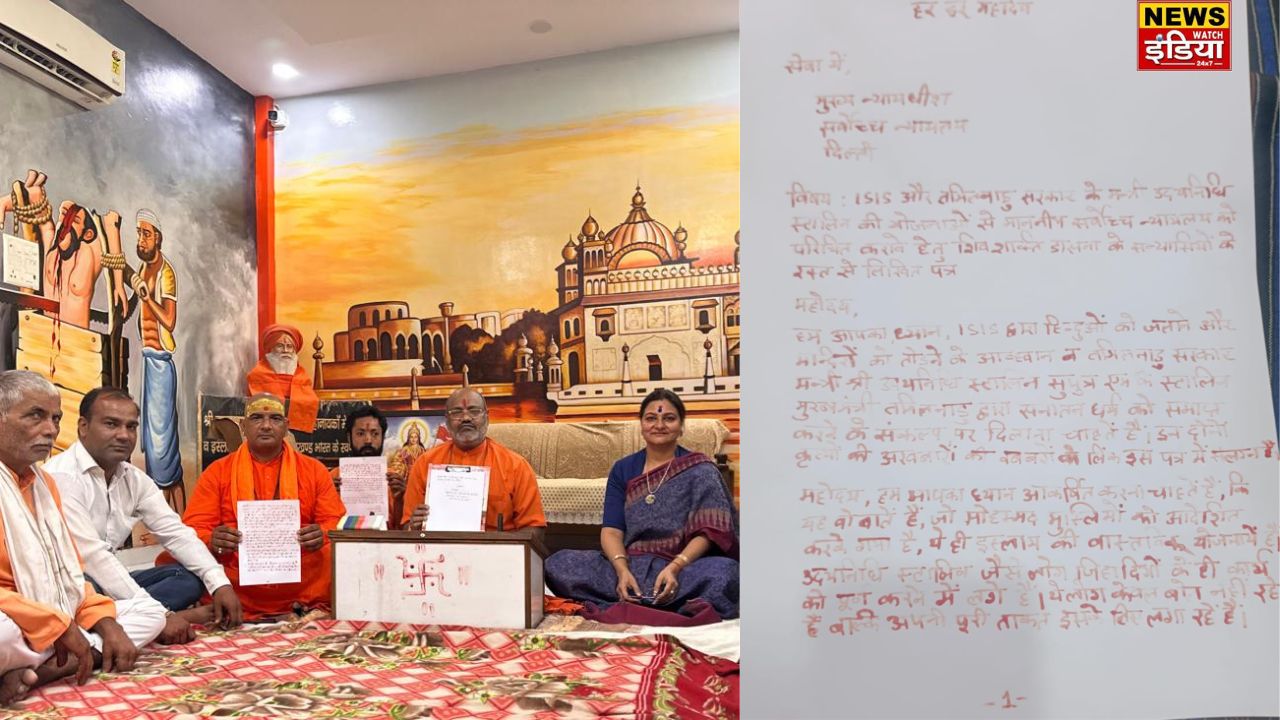 NEWS
WATCH
इंडिया
24x7
हर हर महादेव
सेवा में,
मुख्य न्यायधीश
सर्वोच्च न्यायलय
दिल्ली
विषय : ISIS और तमिलनाडु सरकार के मंत्री उदयनिधि
स्टालिन की योजनाओं से माननीय सर्वोच्च न्यायलय को
परिचित कराने हेतु शिवशक्ति डासना के सन्यासियों के
रक्त से लिखित पत्र
महोदय,
हम आपका ध्यान, ISIS द्वारा हिन्दुओं को जलाने और
मंदिरों को तोड़ने के आवाहन व तमिलनाडु सरकार
मन्त्री श्री उदयनिधि स्टालिन सुपुत्र एम के स्टालिन
मुख्यमंत्री तमिलनाडु द्वारा सनातन धर्म को समाप्त
करने के संकल्प पर दिलाना चाहते हैं। इन दोनों
कृत्यों की अखबारों की खबरों के लिंक इस पत्र में संलग्न हैं
महोदय, हम आपका ध्यान आकर्षित करना चाहते हैं, कि
यह वो बातें हैं, जो मोहम्मद मुस्लिमों को आदेशित
करके गया है, ये ही इस्लाम की वास्तविक योजनायें हैं
उदयनिधि स्टालिन जैसे लोग जिहादियों के ही कार्य
को पूरा करने में लगे हैं। ये लोग केवल बात नहीं कर रहे
हैं बल्कि अपनी पूरी ताकत इसके लिए लगा रहे हैं।
-1-